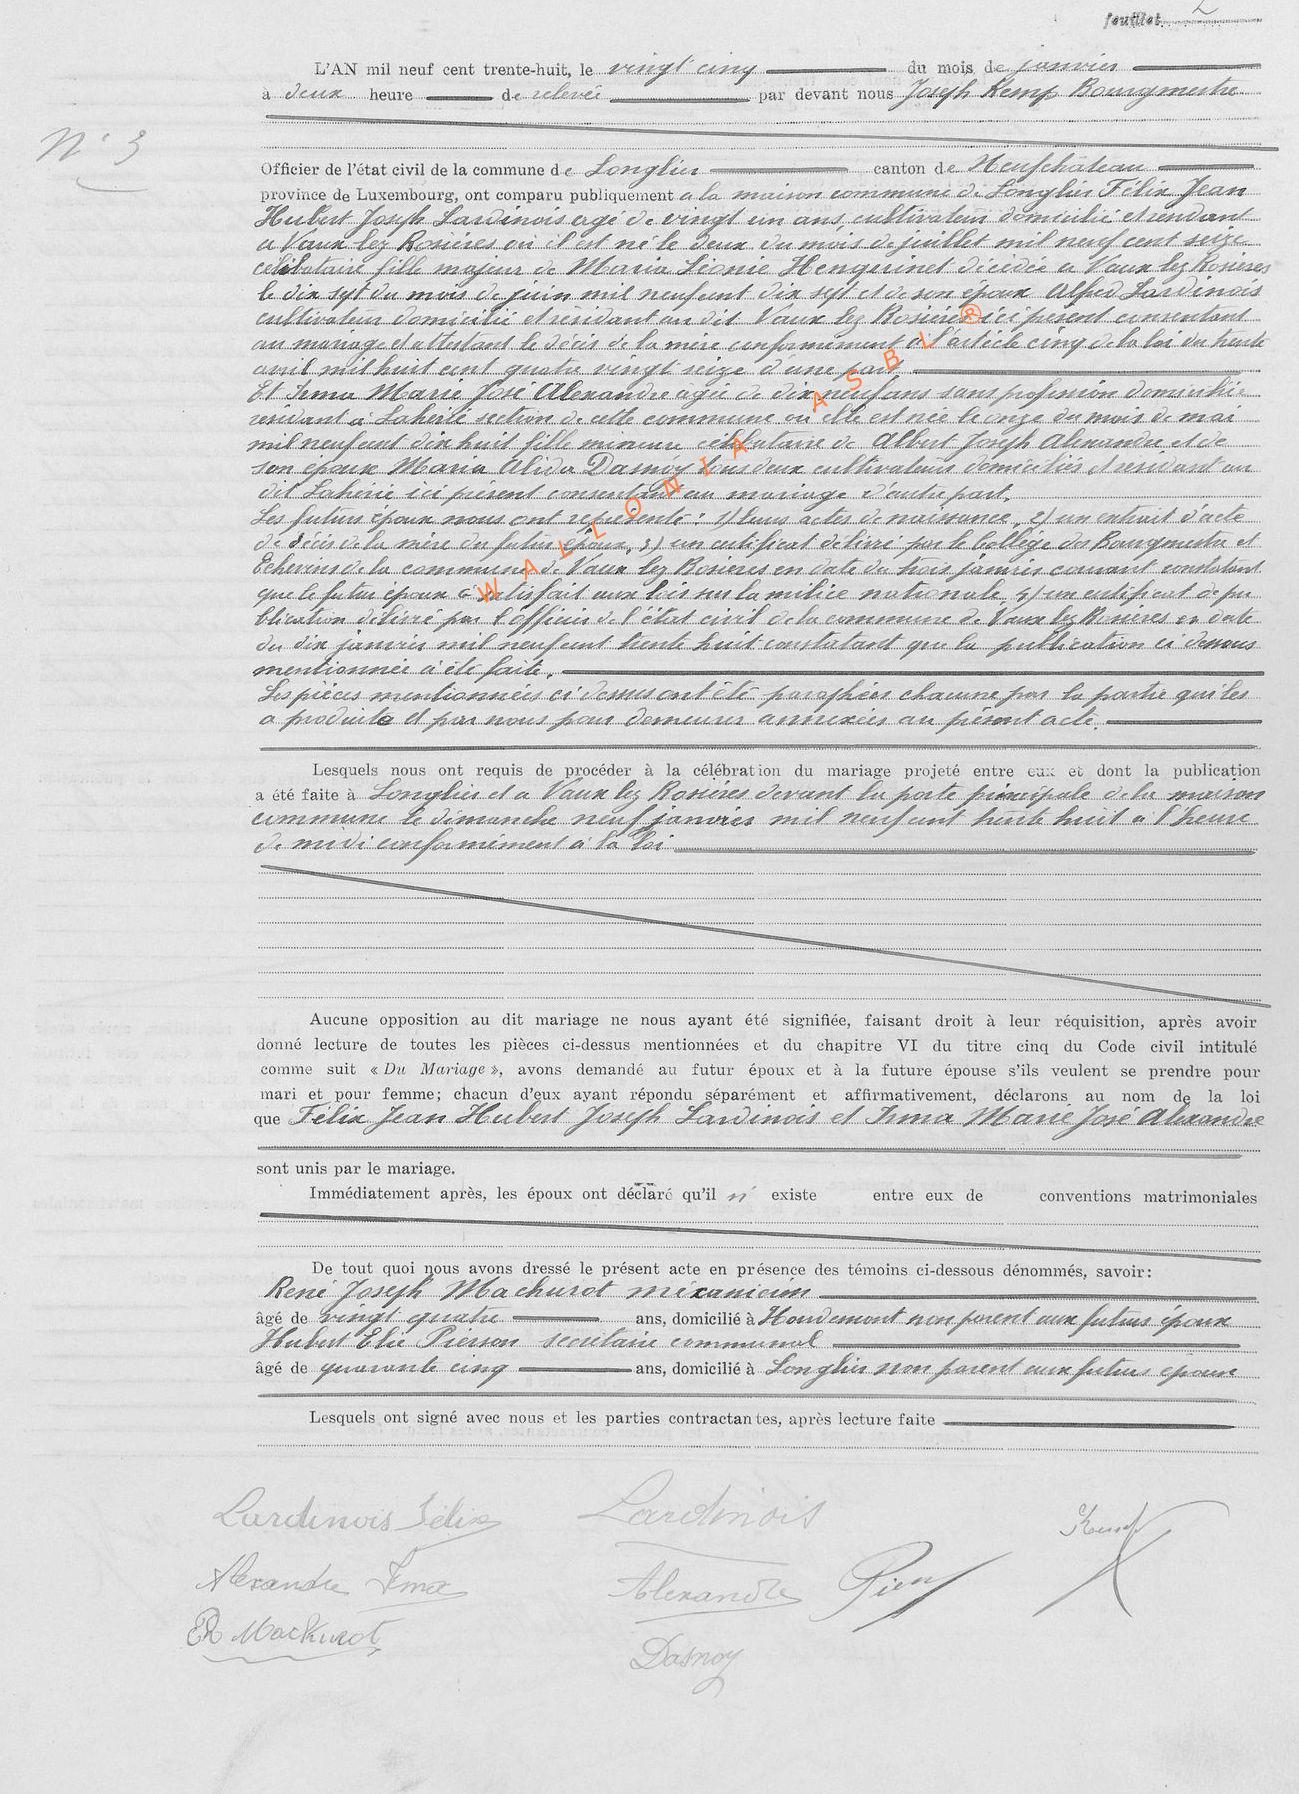 feuillet 2
L'AN mil neuf cent trente-huit, le vingt cinq du mois de janvier
à deux heure de relevée par devant nous Joseph Kemp Bourgmestre
N° 3
Officier de l'état civil de la commune de Longlier canton de Neufchâteau
province de Luxembourg, ont comparu publiquement a la maison commune de Longlier Félix Jean
Hubert Joseph Lardinois agé de vingt un ans, cultivateur domicilié et rendant
a Vaux lez Rosières où il est né le deux du mois de juillet mil neuf cent seize
célibataire fille majeur de Maria Léonie Henquinet décédée a Vaux lez Rosières
le dix sept du mois de juin mil neuf cent dix sept et de son époux Alfred Lardinois
cultivateur domicilié et résidant au dit Vaux lez Rosières ici présent consentant
au mariage et attestant le décès de la mère conformément à l'article cinq de la loi du trente
avril mil huit cent quatre vingt seize d'une part
Et Irma Marie José Alexandre agée de dix neuf ans sans profession domiciliée
résidant à Lahérie section de cette commune où elle est née le onze du mois de mai
mil neuf cent dix huit fille mineure célibataire de Albert Joseph Alexandre et de
son époux Maria Alida Dasnoy tous deux cultivateurs domiciliés et résidant au
dit Lahérie ici présent consentant au mariage d'autre part.
Les futurs époux nous ont représenté : 1) leurs actes de naissance, 2) un extrait d'acte
de décès de la mère du futur époux, 3) un certificat délivré par le Collège des Bourgmestre et
Echevins de la commune de Vaux lez Rosières en date du trois janvier courant constatant
que le futur époux a satisfait aux lois sur la milice nationale 4) un certificat de pu
blication délivré par l'officier de l'état civil de la commune de Vaux lez Rosières en date
du dix janvier mil neuf cent trente huit constatant que la publication ci dessous
mentionnée a été faite.
Les pièces mentionnées ci dessus ont été paraphées chacune par la partie qui les
a produite et par nous pour demeurer annexées au présent acte.
Lesquels nous ont requis de procéder à la célébration du mariage projeté entre eux et dont la publication
a été faite à Longlier et a Vaux lez Rosières devant la porte principale de la maison
commune le dimanche neuf janvier mil neuf cent trente huit à l'heure
de midi conformément à la loi
Aucune opposition au dit mariage ne nous ayant été signifiée, faisant droit à leur réquisition, après avoir
donné lecture de toutes les pièces ci-dessus mentionnées et du chapitre VI du titre cinq du Code civil intitulé
comme suit « Du Mariage », avons demandé au futur époux et à la future épouse s'ils veulent se prendre pour
mari et pour femme; chacun d'eux ayant répondu séparément et affirmativement, déclarons au nom de la loi
que Félix Jean Hubert Joseph Lardinois et Irma Marie José Alexandre
sont unis par le mariage.
Immédiatement après, les époux ont déclaré qu'il n' existe entre eux de conventions matrimoniales
De tout quoi nous avons dressé le présent acte en présence des témoins ci-dessous dénommés, savoir:
René Joseph Machurot mécanicien
âgé de vingt quatre ans, domicilié à Houdemont non parent aux futurs époux
Hubert Elie Pierson secrétaire communal
âgé de quarante cinq ans, domicilié à Longlier non parent aux futurs époux
Lesquels ont signé avec nous et les parties contractantes, après lecture faite
Lardinois Félix Lardinois Kemp
Alexandre Irma Alexandre
R Machurot
Dasnoy
WALLONIA ASBL ®